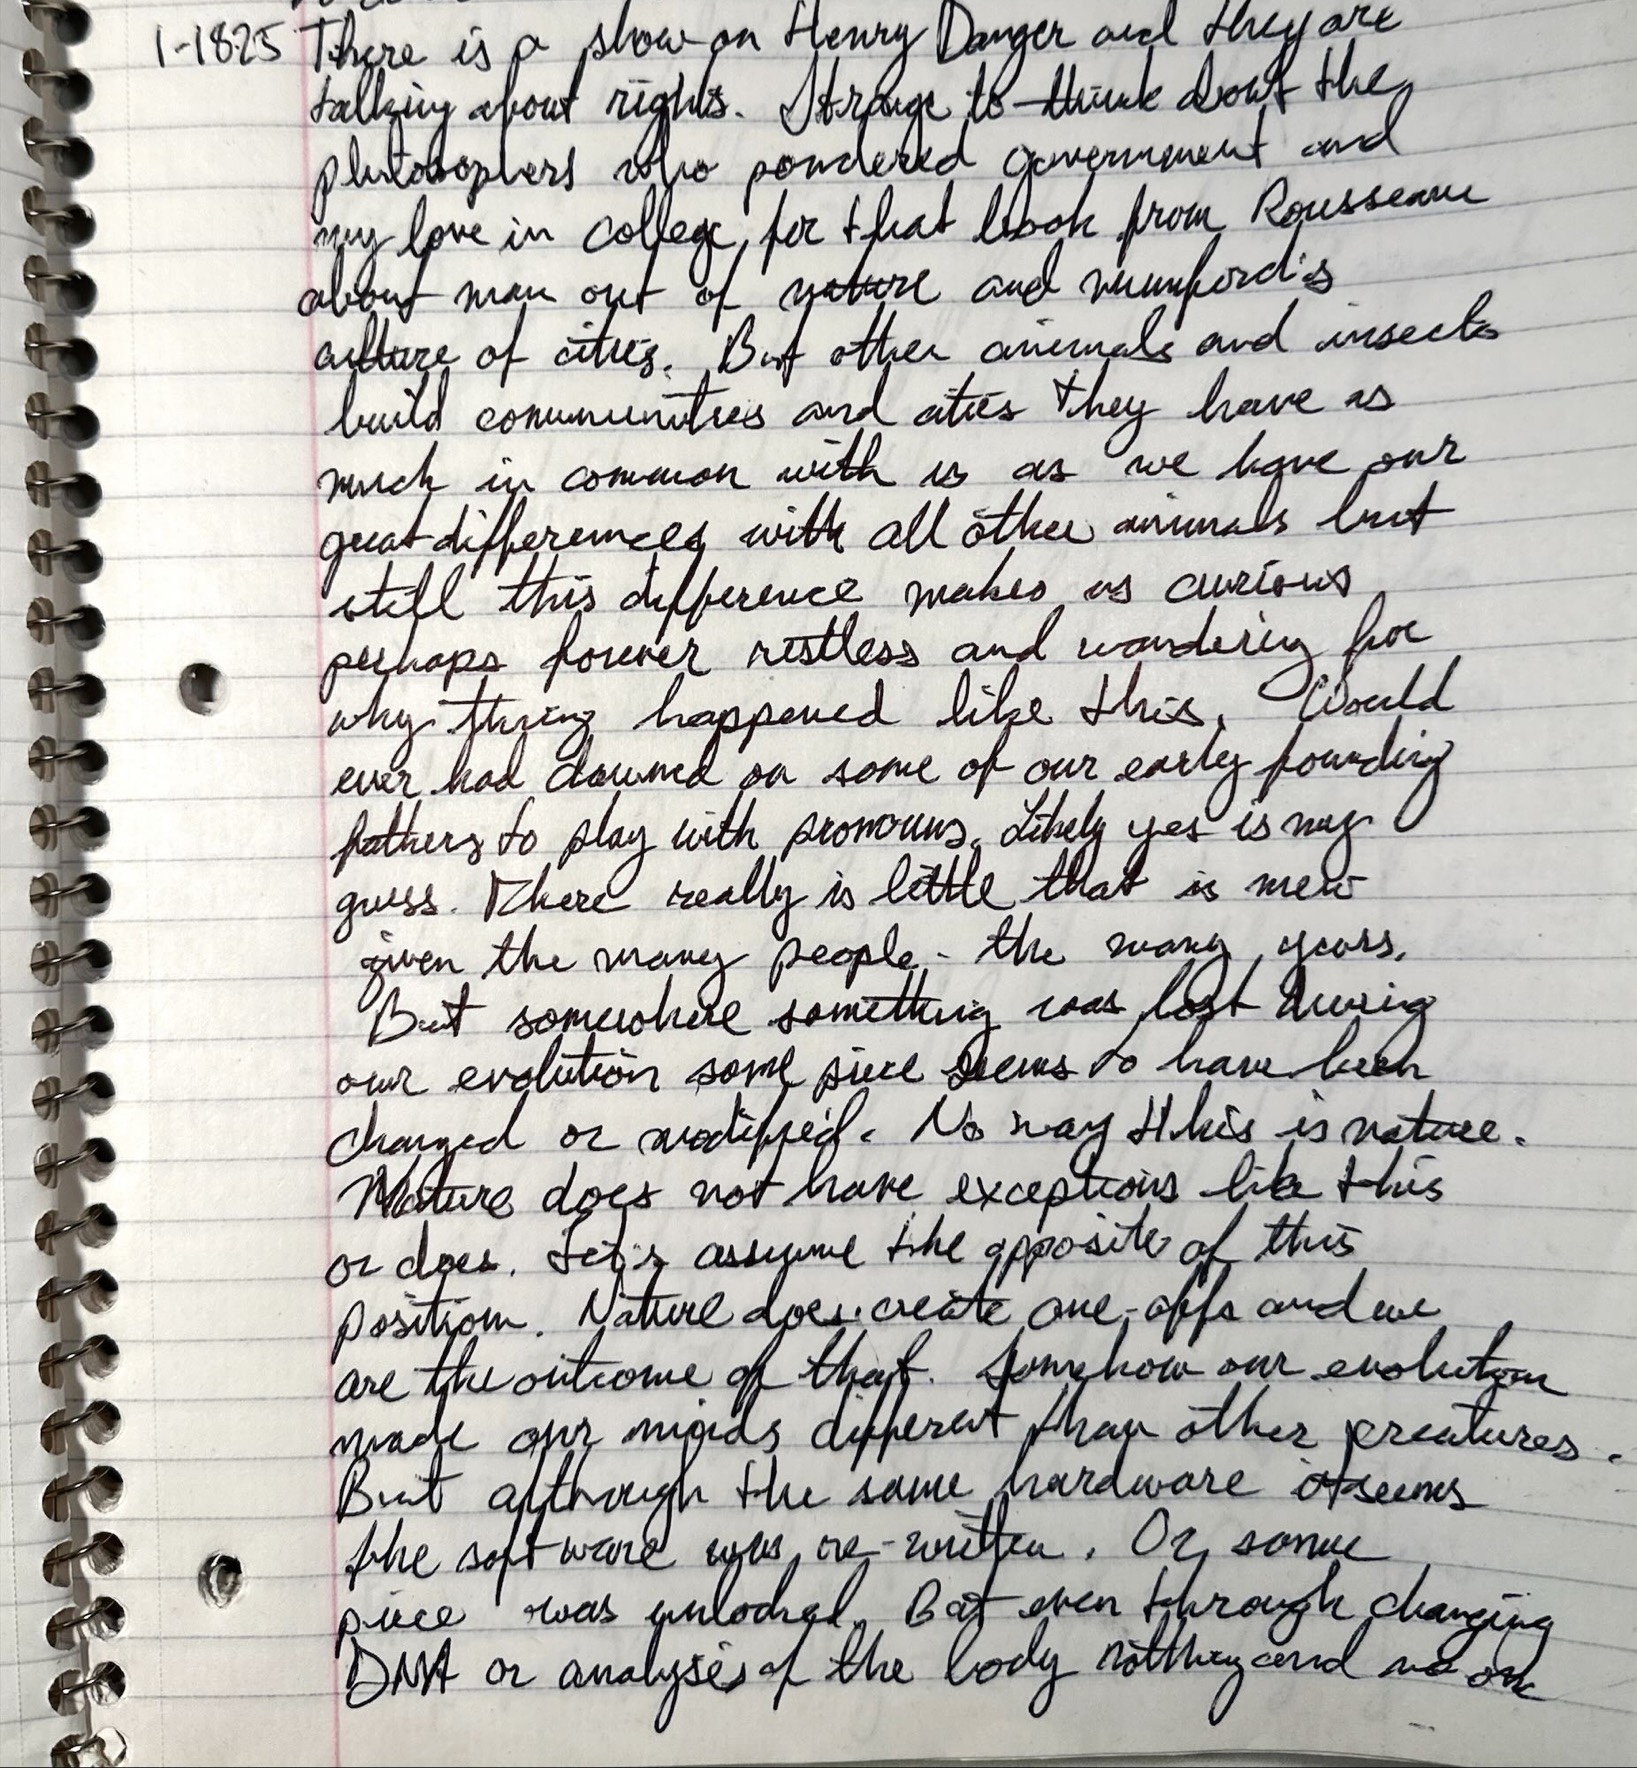 1-18-25 There is a show on Henry Danger and they are
talking about rights. Strange to think about the
philosophers who pondered government and
my love in college, for that book from Rousseau
about man out of nature and mumford's
culture of cities. But other animals and insects
build communities and cities they have as
much in common with us as we have our
great differences with all other animals but
still this difference makes us curious
perhaps forever restless and wandering for
why thing happened like this. Would
ever had dawned on some of our early founding
fathers to play with pronouns. Likely yes is my
guess. There really is little that is new
given the many people - the many years.
But somewhere something was lost during
our evolution some piece seems to have been
changed or modified. No way this is nature.
Nature does not have exceptions like this
or does. Let's assume the opposite of this
position. Nature does create one-offs and we
are the outcome of that. Somehow our evolution
made our minds different than other creatures.
But although the same hardware it seems
the software was re-written. Or some
piece was unlocked. But even through changing
DNA or analysis of the body nothing and no one